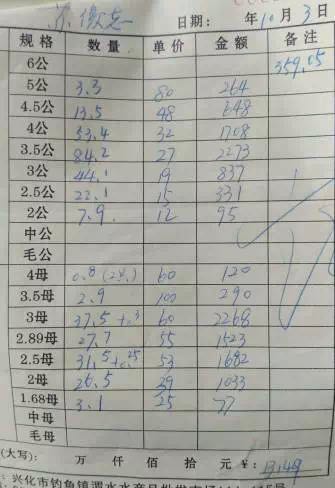 日期: 年10月3日
规格 数量 单价 金额 备注
6公 359.05
5公 3.3 80 264
4.5公 13.5 48 648
4公 53.4 32 1708
3.5公 84.2 27 2273
3公 44.1 19 837
2.5公 22.1 15 331
2公 7.9 12 95
中公
毛公
4母 0.8 60 120
3.5母 2.9 100 290
3母 37.5+0.3 60 2268
2.89母 27.7 55 1523
2.5母 31.5+0.25 53 1682
2母 26.5 39 1033
1.68母 3.1 25 77
中母
毛母
(大写): 万 仟 佰 拾 元 ¥: 13149
兴化市钓鱼镇